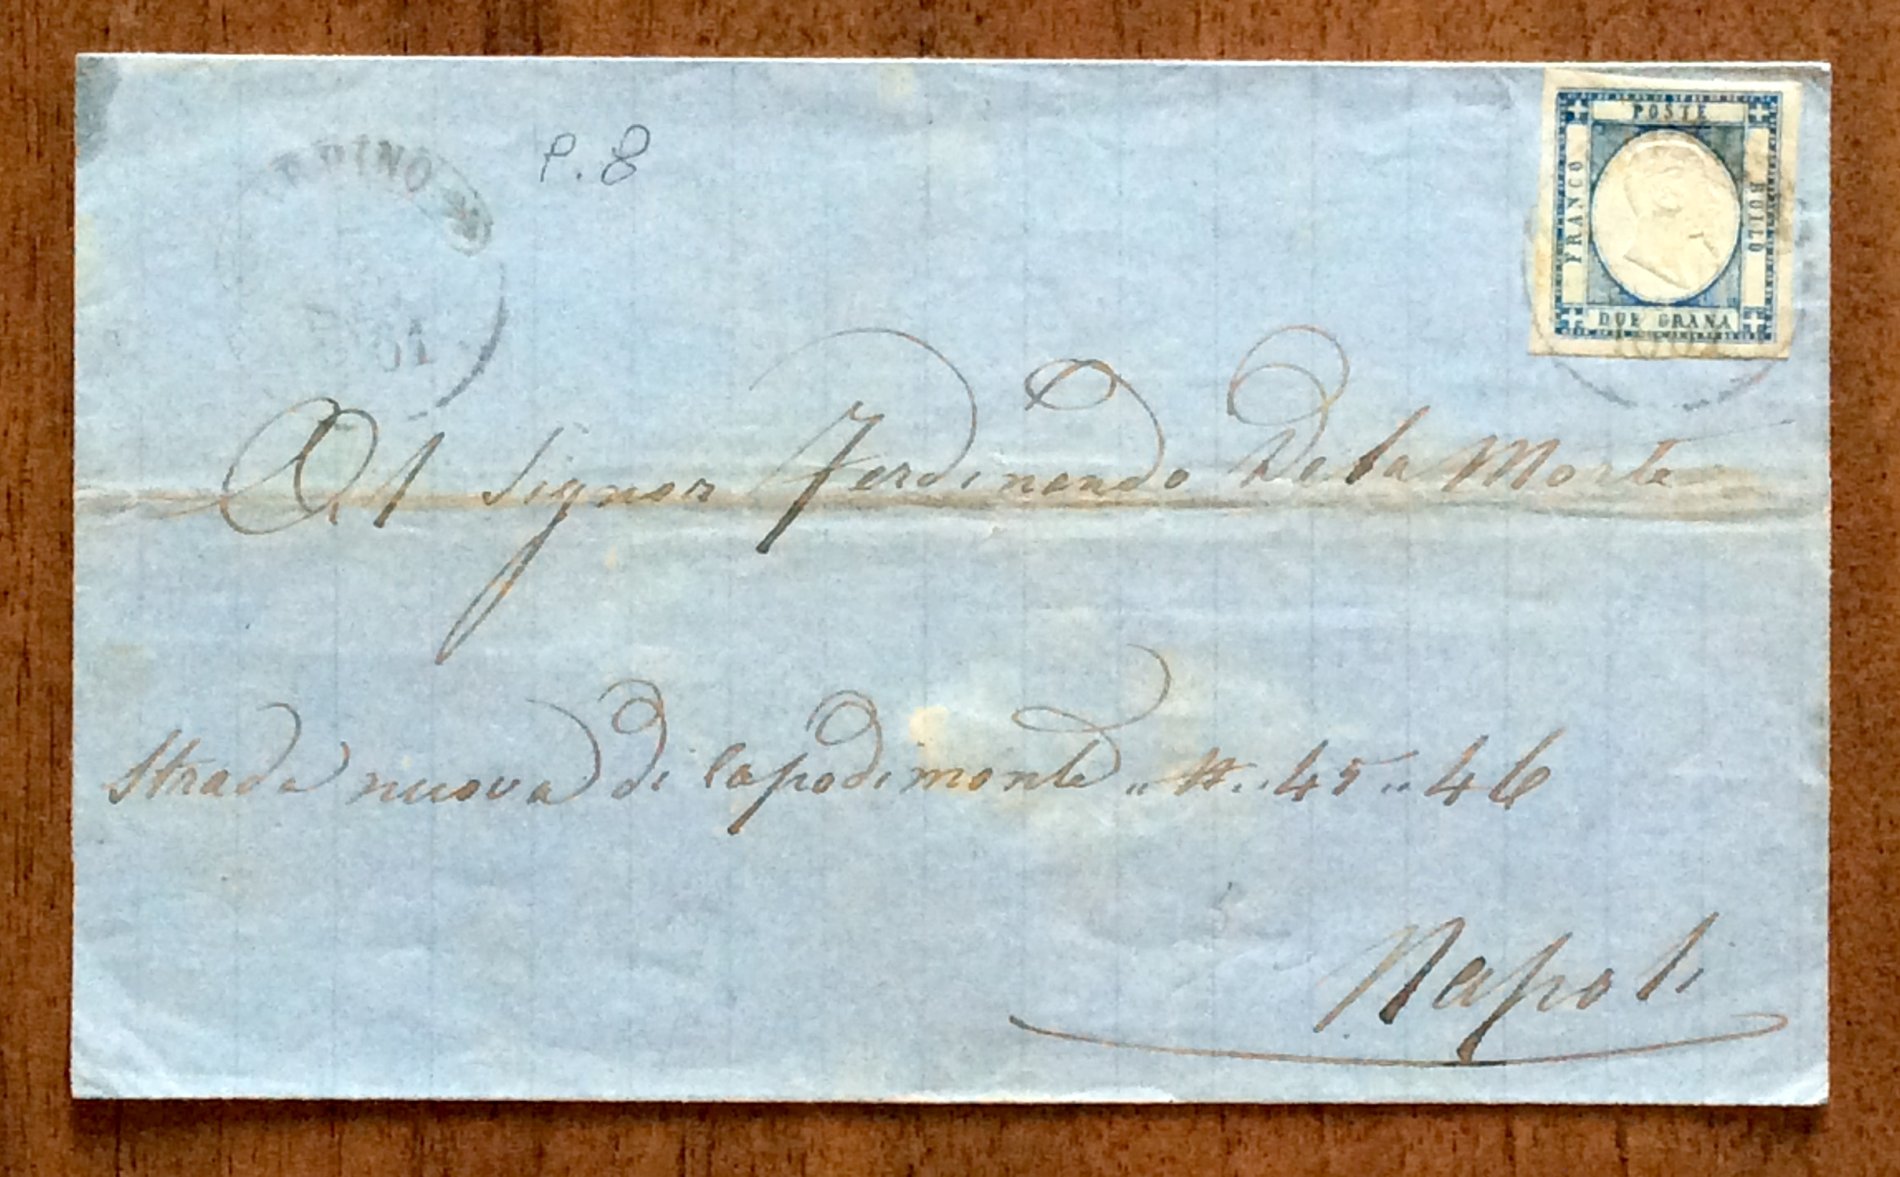 P. 8
POSTE
FRANCO
BOLLO
DUE GRANA
61
Al Signor Ferdinando De la Morte
Strada nuova di Capodimonte „ N. „ 45 „ 46
Napoli